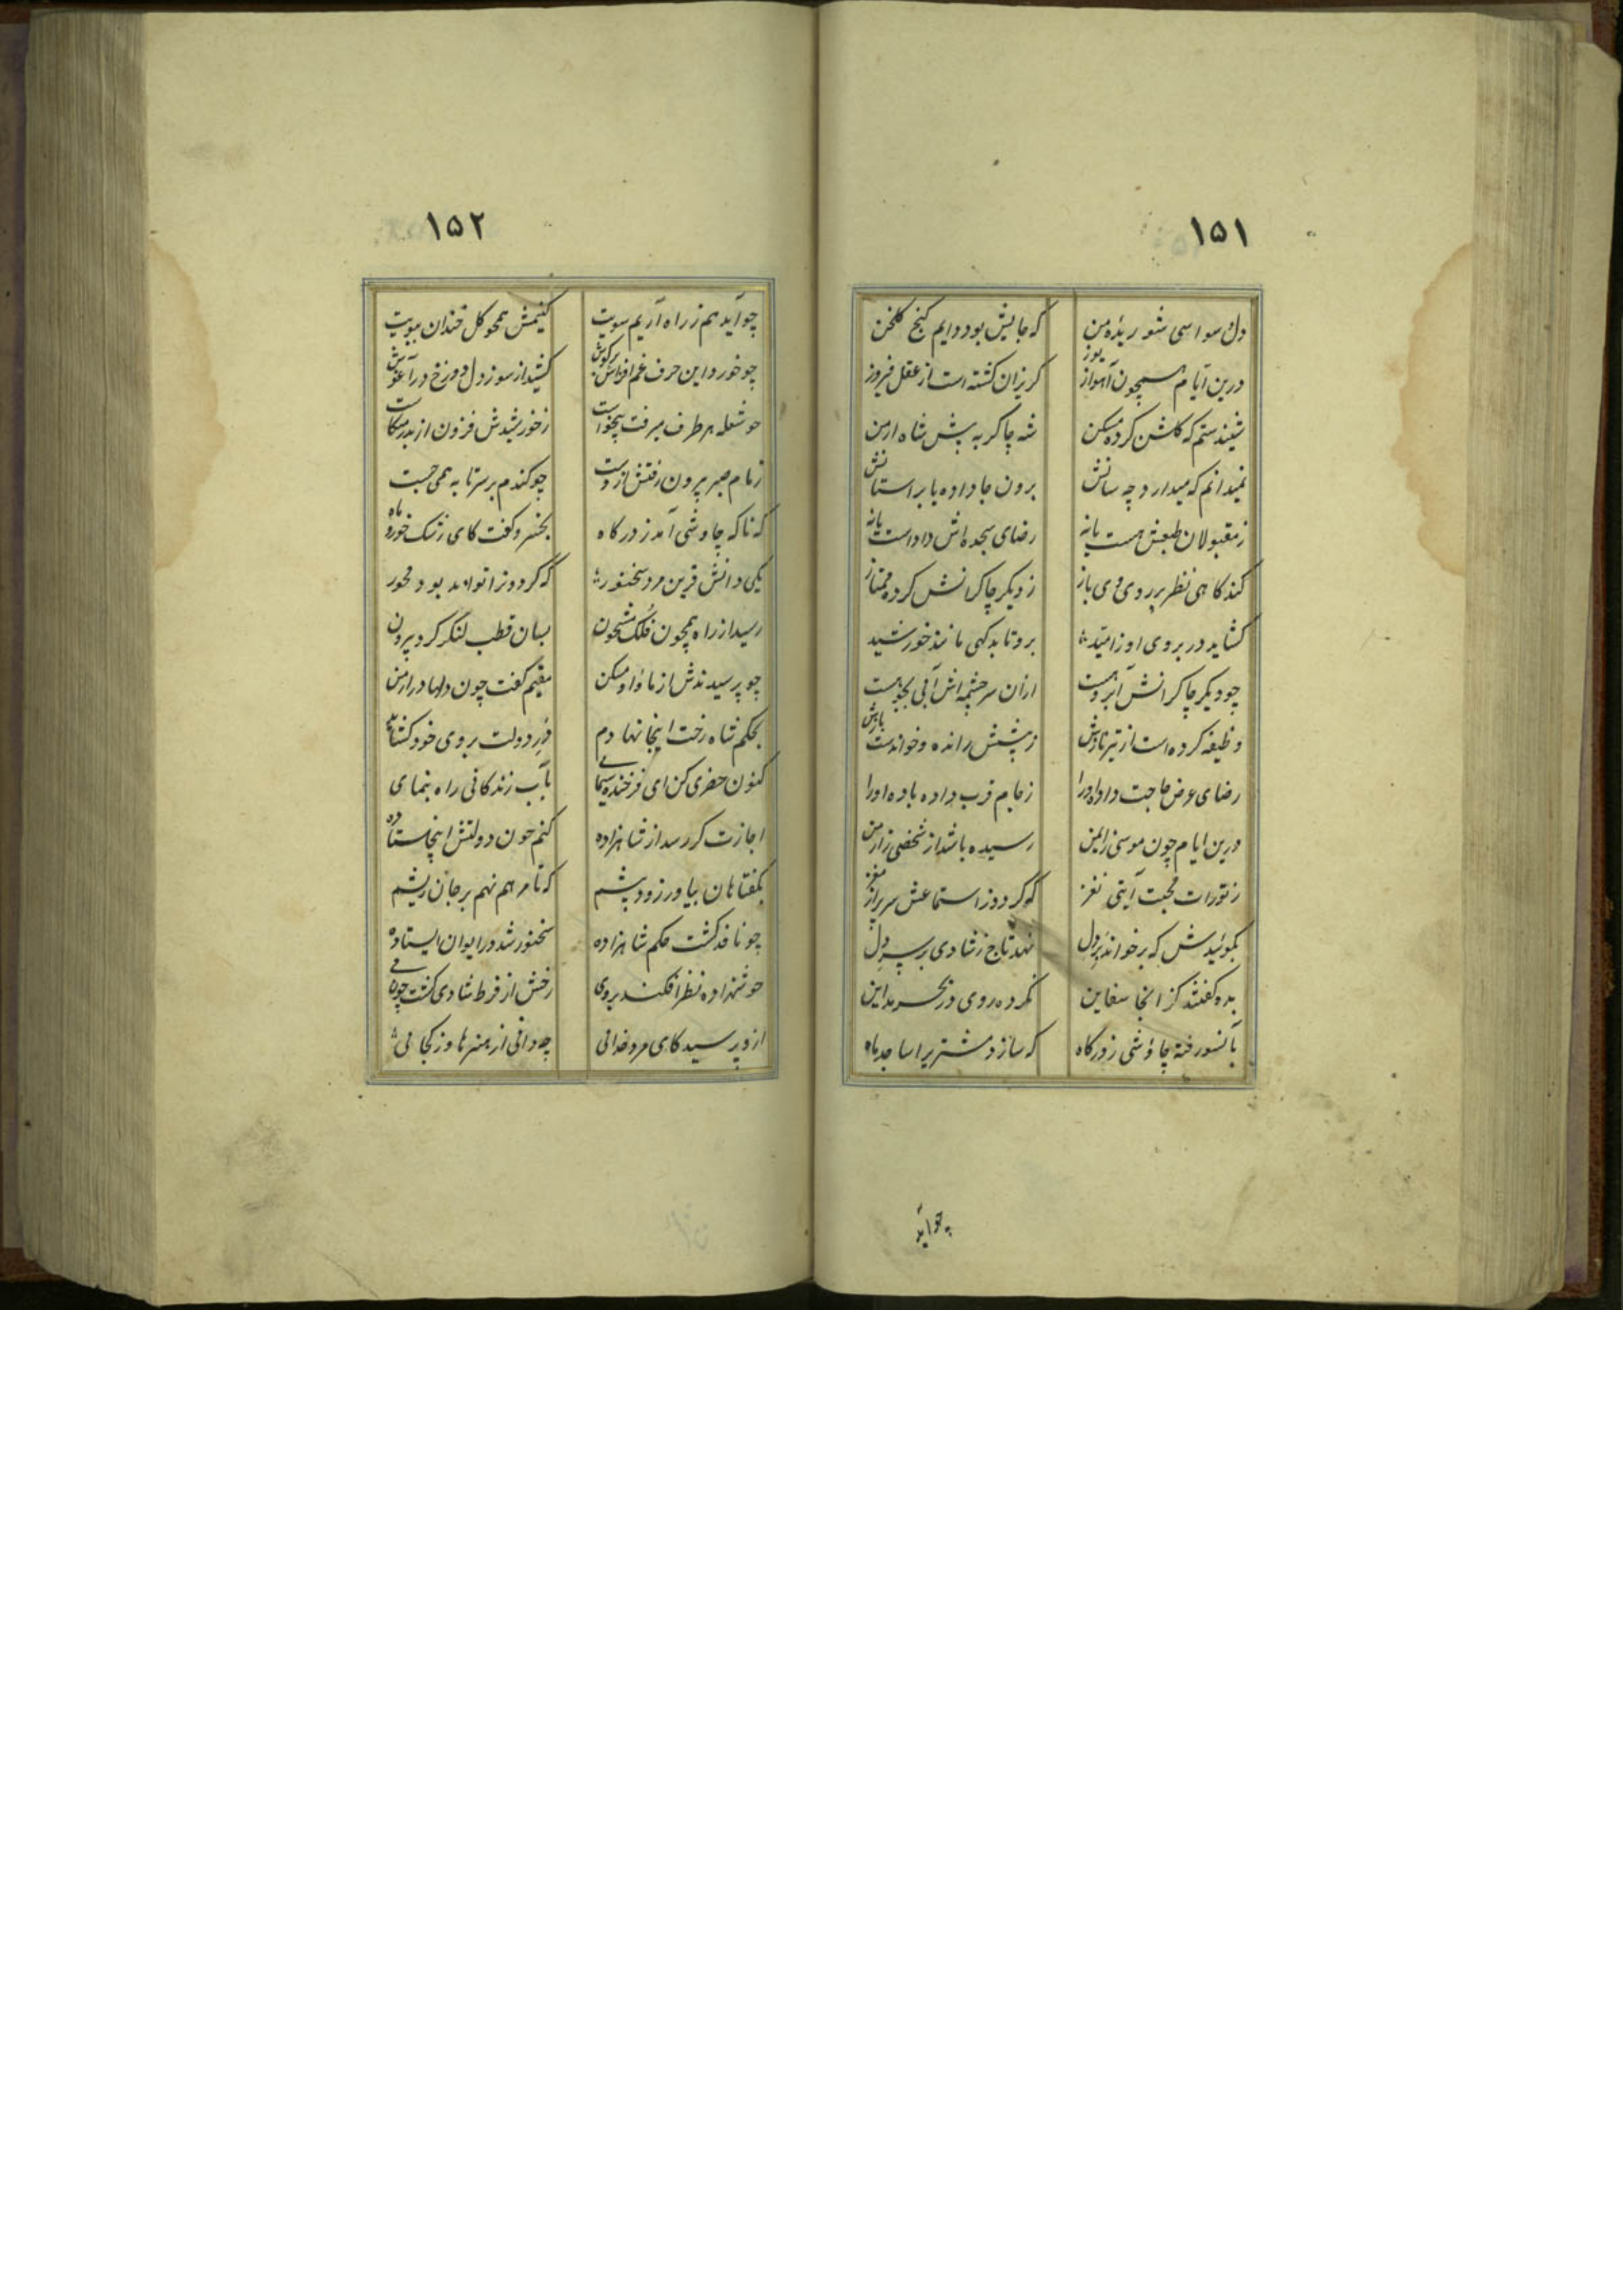 ۱۵۱
دل سواسی شوریده من که جایش بود دایم کنج کلخن
درین ایام همچون آهو از یوز کریزان کشته است از عقل فیروز
شنیدستم که کلشن کرده مسکن شه چاکر به پیش شاه ارمن
نمیدانم که میدارد چه سانش برون جا داده یا بر استانش
ز مقبولان طبعش هست یا نه رضای سجده اش داداست یا نه
کند کاهی نظر بر روی وی باز ز دیکر چاکرانش کرده ممتاز
کشاید در بروی او ز امید برو تابد کهی مانند خورشید
چو دیکر چاکرانش آبرو هست ازان سرچشمه اش آبی بجو هست
وظیفه کرده است از تیر نازش ز پیشش رانده و خواندست بازش
رضای عرض حاجت داد او را ز جام قرب داده باده او را
درین ایام چون موسی ز ایمن رسیده باشد از شخصی ز ارمن
ز تورات محبت آیتی نغز که کردد ز استماعش سر پر از مغز
بکوئیدش که بر خواند بر دل نهد تاج ز شادی بر سر دل
بده کفتند کز انجا سفاین نکرده روی در بحر مداین
بآنسو رفته چاوشی ز درکاه که سازد مشتریرا ساجد ماه
چو آید
۱۵۲
چو آید هم ز راه آریم سویت کنیمش همچو کل خندان ببویت
چو خورد این حرف غم افزاش بر کوش کشید از سوز دل دوزخ در آغوش
چو شعله هر طرف میرفت و میخواست ز خورشیدش فزون از بدر میکاست
زمام صبر بیرون رفتش از دست چو کندم بر سر تابه همی جست
که ناکه چاوشی آمد ز درکاه بخسرو کفت کای رشک خور و ماه
یکی دانش قرین مرد سخنور که کردون را تواند بود محور
رسید از راه همچون فلک مشحون بسان قطب لنکر کرد بیرون
چو پرسیدندش از ماوا و مسکن مقیم کفت چون دلها در ارمن
بحکم شاه رخت اینجا نهادم در دولت بروی خود کشادم
کنون خضری کن ای فرخنده سیمای بآب زندکانی راه بنمای
اجازت کر رسد از شاهزاده کنم چون دولتش اینجا ستاده
بکفتا هان بیاور زود پیشم که تا مرهم نهم بر جان ریشم
چو نافذ کشت حکم شاهزاده سخنور شد در ایوان ایستاده
چو شهزاده نظر افکند بروی رخش از فرط شادی کشت چون می
ازو پرسید کای مرد خدائی چه دانی از هنرها وز کجائی